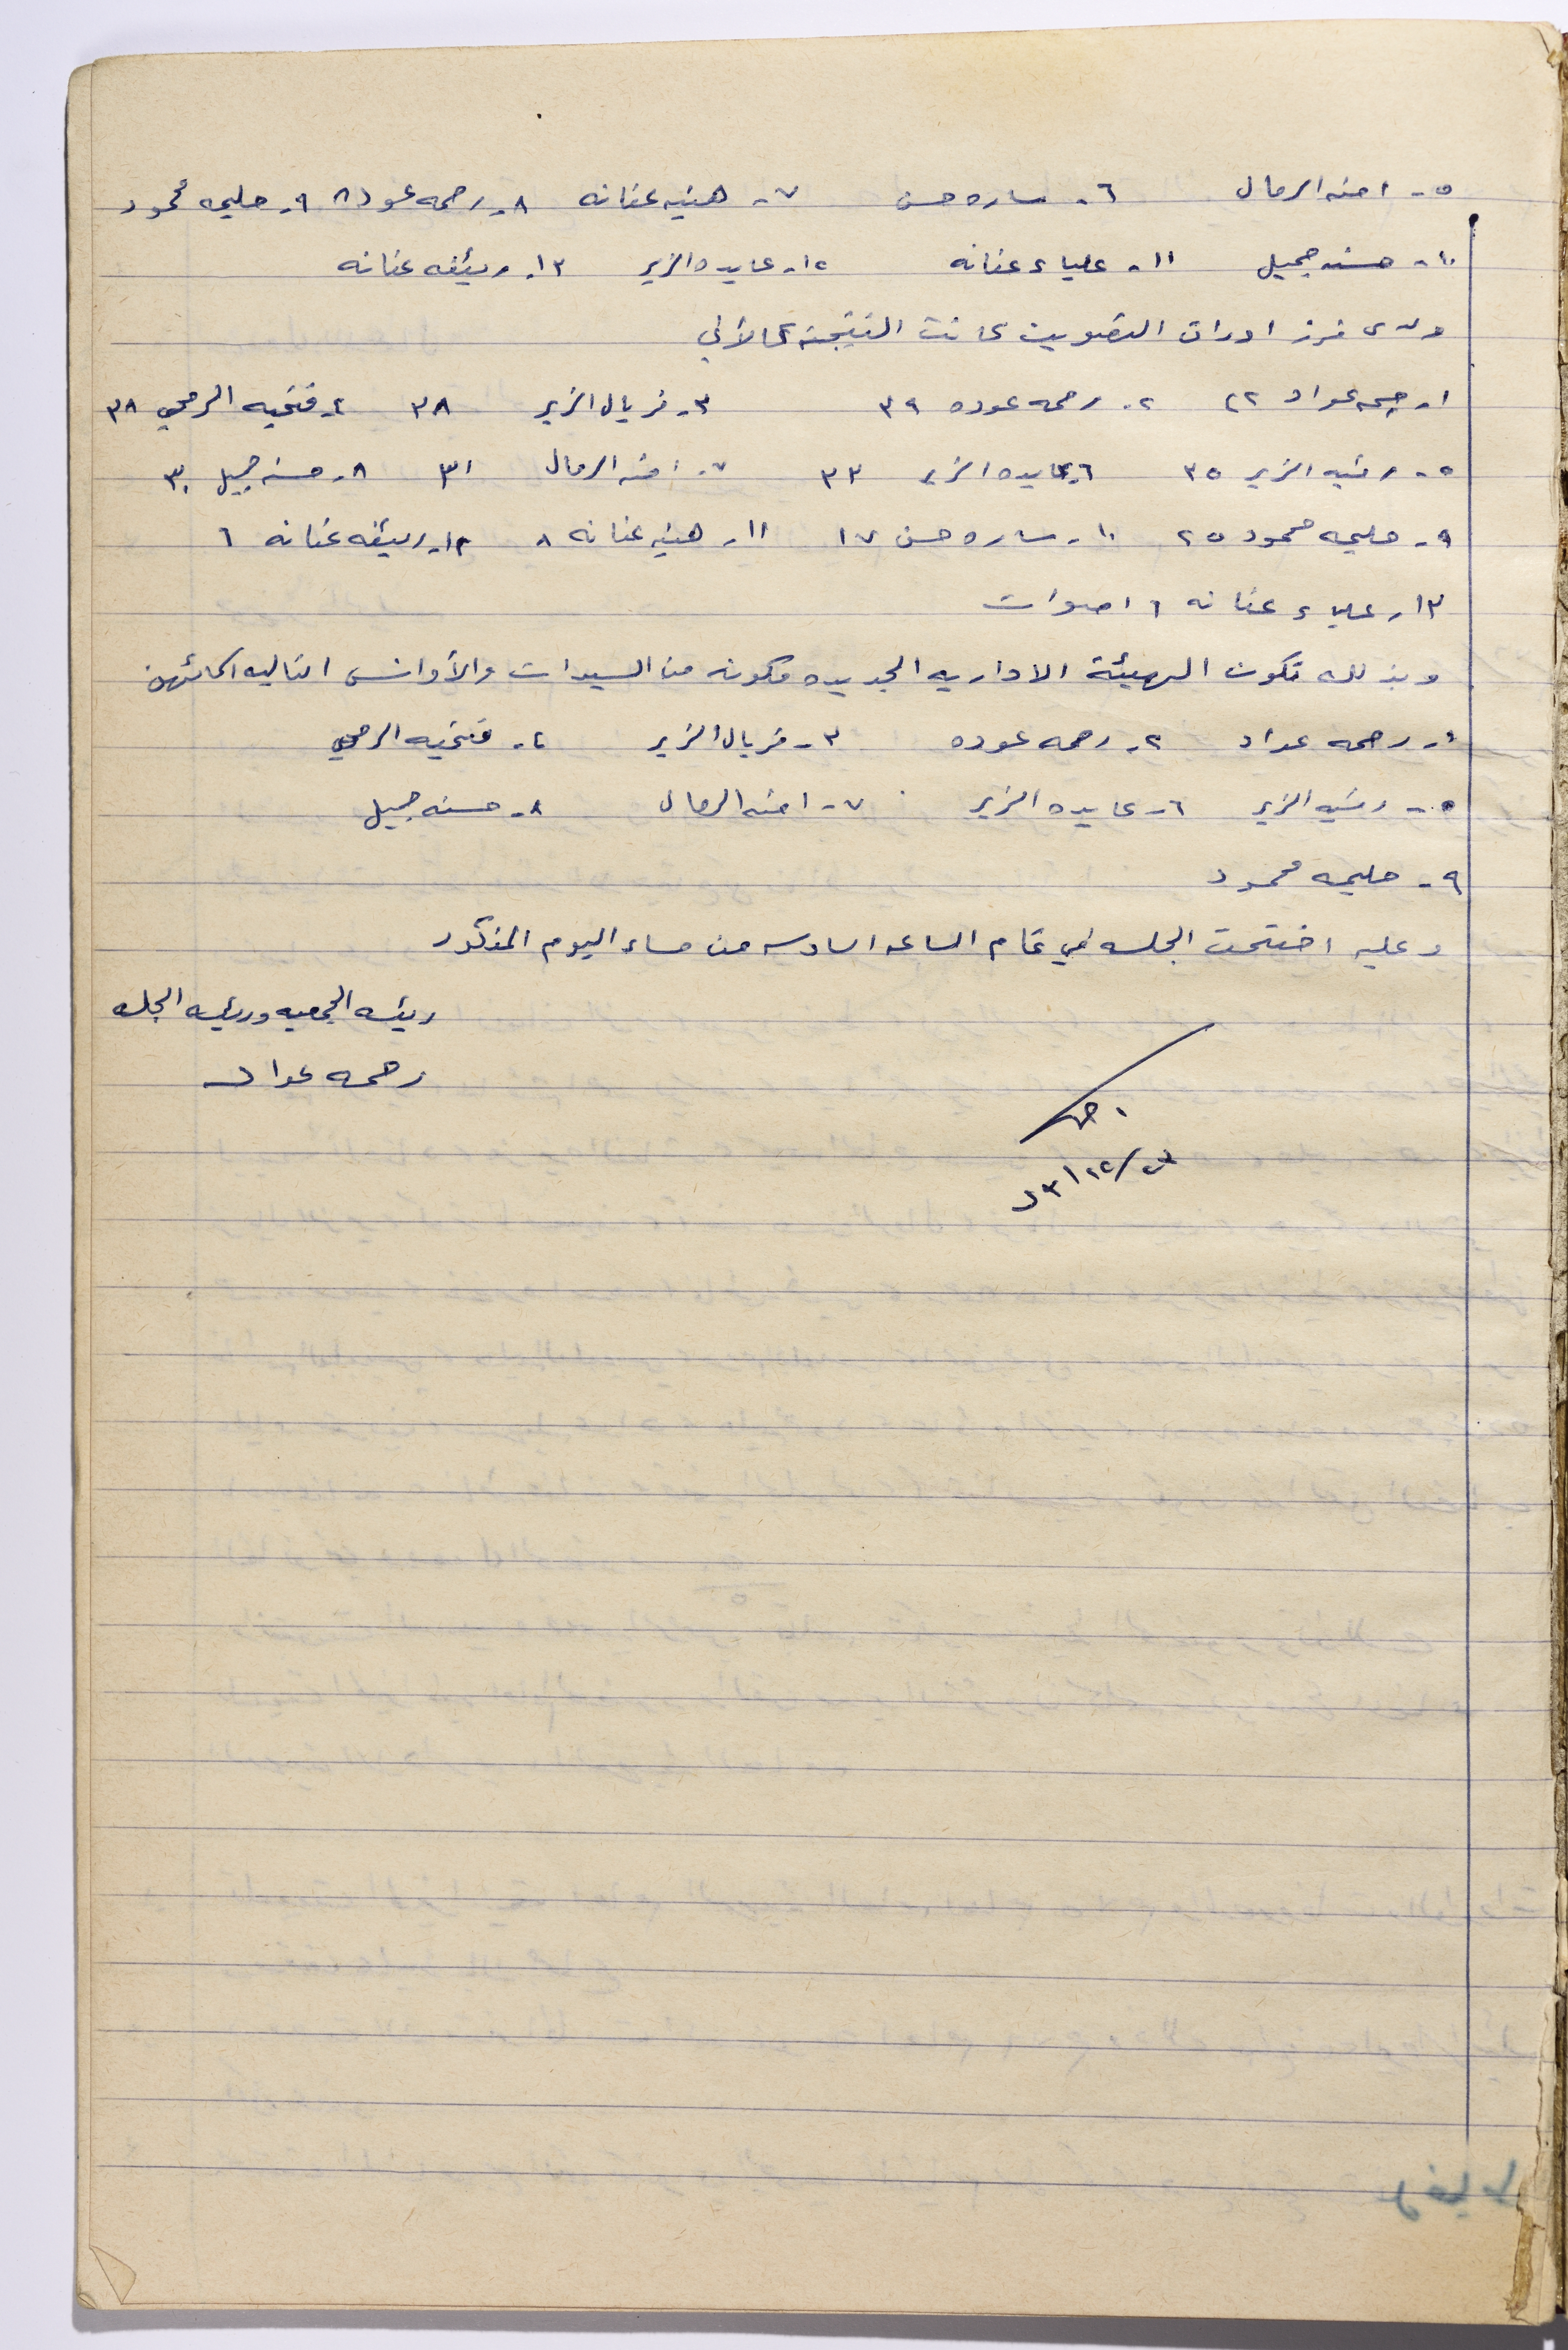 ٥- امنه الرمال ٦- ساره حسن ٧- هنيه عنانه ٨- رحمه عوده ٩- حليمه محمود
١٠- حسنه جميل ١١- علياء عنانه ١٢- عايده الزير ١٣- ريئفه عنانه
ولدى فرز اوراق التصويت كانت النتيجة كالآتي
١- رحمه عواد ٤٢ ٢- رحمه عوده ٣٩ ٣- فريال الزير ٣٨ ٤- فتحيه الرمحي ٣٨
٥- رسميه الزير ٣٥ ٦- عايده الزير ٣٣ ٧- امنه الرمال ٣١ ٨- حسنه جميل ٣٠
٩- حليمه محمود ٢٥ ١٠- ساره حسن ١٧ ١١- هنيه عنانه ٨ ١٢- ريئفه عنانه ٦
١٣- علياء عنانه ٦ اصوات
وبذلك تكون الهيئة الاداريه الجديده مكونه من السيدات والأوانس التاليه اسمائهن
١- رحمه عواد ٢- رحمه عوده ٣- فريال الزير ٤- فتحيه الرمحي
٥- رسميه الزير ٦- عايده الزير ٧- امنه الرمال ٨- حسنه جميل
٩- حليمه محمود
وعليه اختتمت الجلسه في تمام الساعه السادسه من مساء اليوم المذكور
رئيسه الجمعيه ورئيسه الجلسه
رحمه عواد